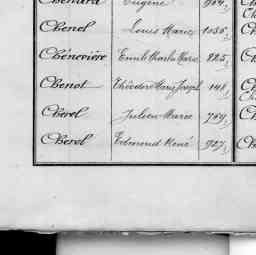 Eugène
Chenel Louis Marie 1055
Chénevière Emile Charles Marie 825
Chenot Théodore Marie Joseph 148
Cherel Julien Marie 759
Cherel Edmond René 927